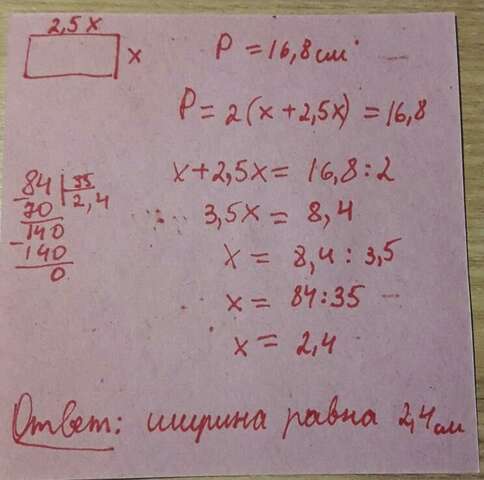 2,5x
x
P = 16,8 см
P = 2(x+2,5x) = 16,8
x+2,5x = 16,8:2
3,5x = 8,4
x = 8,4 : 3,5
x = 84:35
x = 2,4
84 35
70 2,4
140
-140
0
Ответ: ширина равна 2,4 см